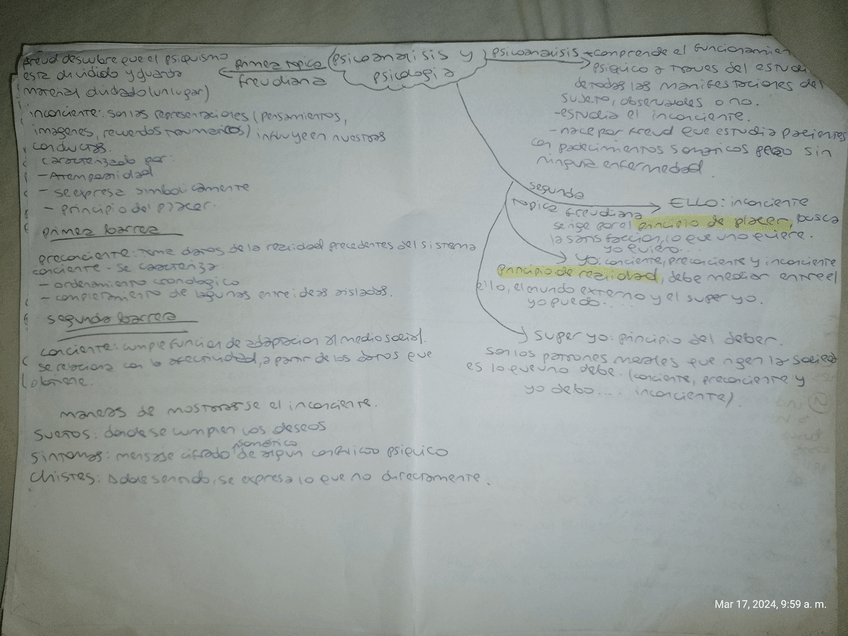 psicoanalisis y
psicologia
primera topica
freudiana
freud descubre que el psiquismo
esta dividido y guarda
material olvidado (un lugar)
inconciente: son las representaciones (pensamientos,
imagenes, recuerdos traumaticos) influyen en nuestras
conductas.
caracterizado por:
- Atemporalidad
- se expresa simbolicamente
- principio del placer.
primera barrera
preconciente: Toma datos de la realidad precedentes del sistema
conciente. se caracteriza
- ordenamiento cronologico
- completamiento de lagunas entre ideas aisladas.
segunda barrera
conciente: cumple funcion de adaptacion al medio social.
se relaciona con la afectividad, a partir de los datos que
obtiene.
maneras de mostrarse el inconciente.
sueños: donde se cumplen los deseos
somatico
sintomas: mensaje cifrado de algun conflicto psiquico
chistes: Doble sentido, se expresa lo que no directamente.
psicoanalisis → comprende el funcionamien
psiquico a traves del estudi
de todas las manifestaciones del
sujeto, observables o no.
- estudia el inconciente.
- nace por freud que estudia pacientes
con padecimientos somaticos pero sin
ninguna enfermedad.
segunda
topica freudiana
ELLO: inconciente
se rige por el principio de placer, busca
la satisfaccion, lo que uno quiere.
yo quiero...
yo: conciente, preconciente y inconciente
principio de realidad, debe mediar entre el
ello, el mundo externo y el super yo.
yo puedo...
super yo: principio del deber.
son los patrones morales que rigen la socied
es lo que uno debe. (conciente, preconciente y
yo debo... inconciente).
Mar 17, 2024, 9:59 a. m.